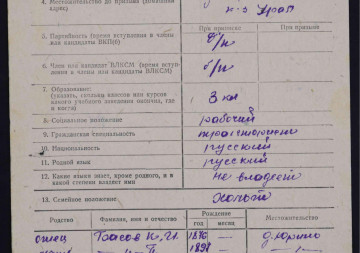 4. Местожительство до призыва (домашний адрес)
к-з Урал
При приписке При призыве
5. Партийность (время вступления в члены или кандидаты ВКП(б)
б/п
6. Член или кандидат ВЛКСМ (время вступления в члены или кандидаты ВЛКСМ)
б/п
7. Образование:
(указать, сколько классов или курсов какого учебного заведения окончил, где и когда)
3 кл
8. Социальное положение рабочий
9. Гражданская специальность тракторист
10. Национальность русский
11. Родной язык русский
12. Какие языки знает, кроме родного, и в какой степени владеет ими
не владеет
13. Семейное положение: холост
Родство Фамилия, имя и отчество Рождение Местожительство
год месяц
отец 1876
1898